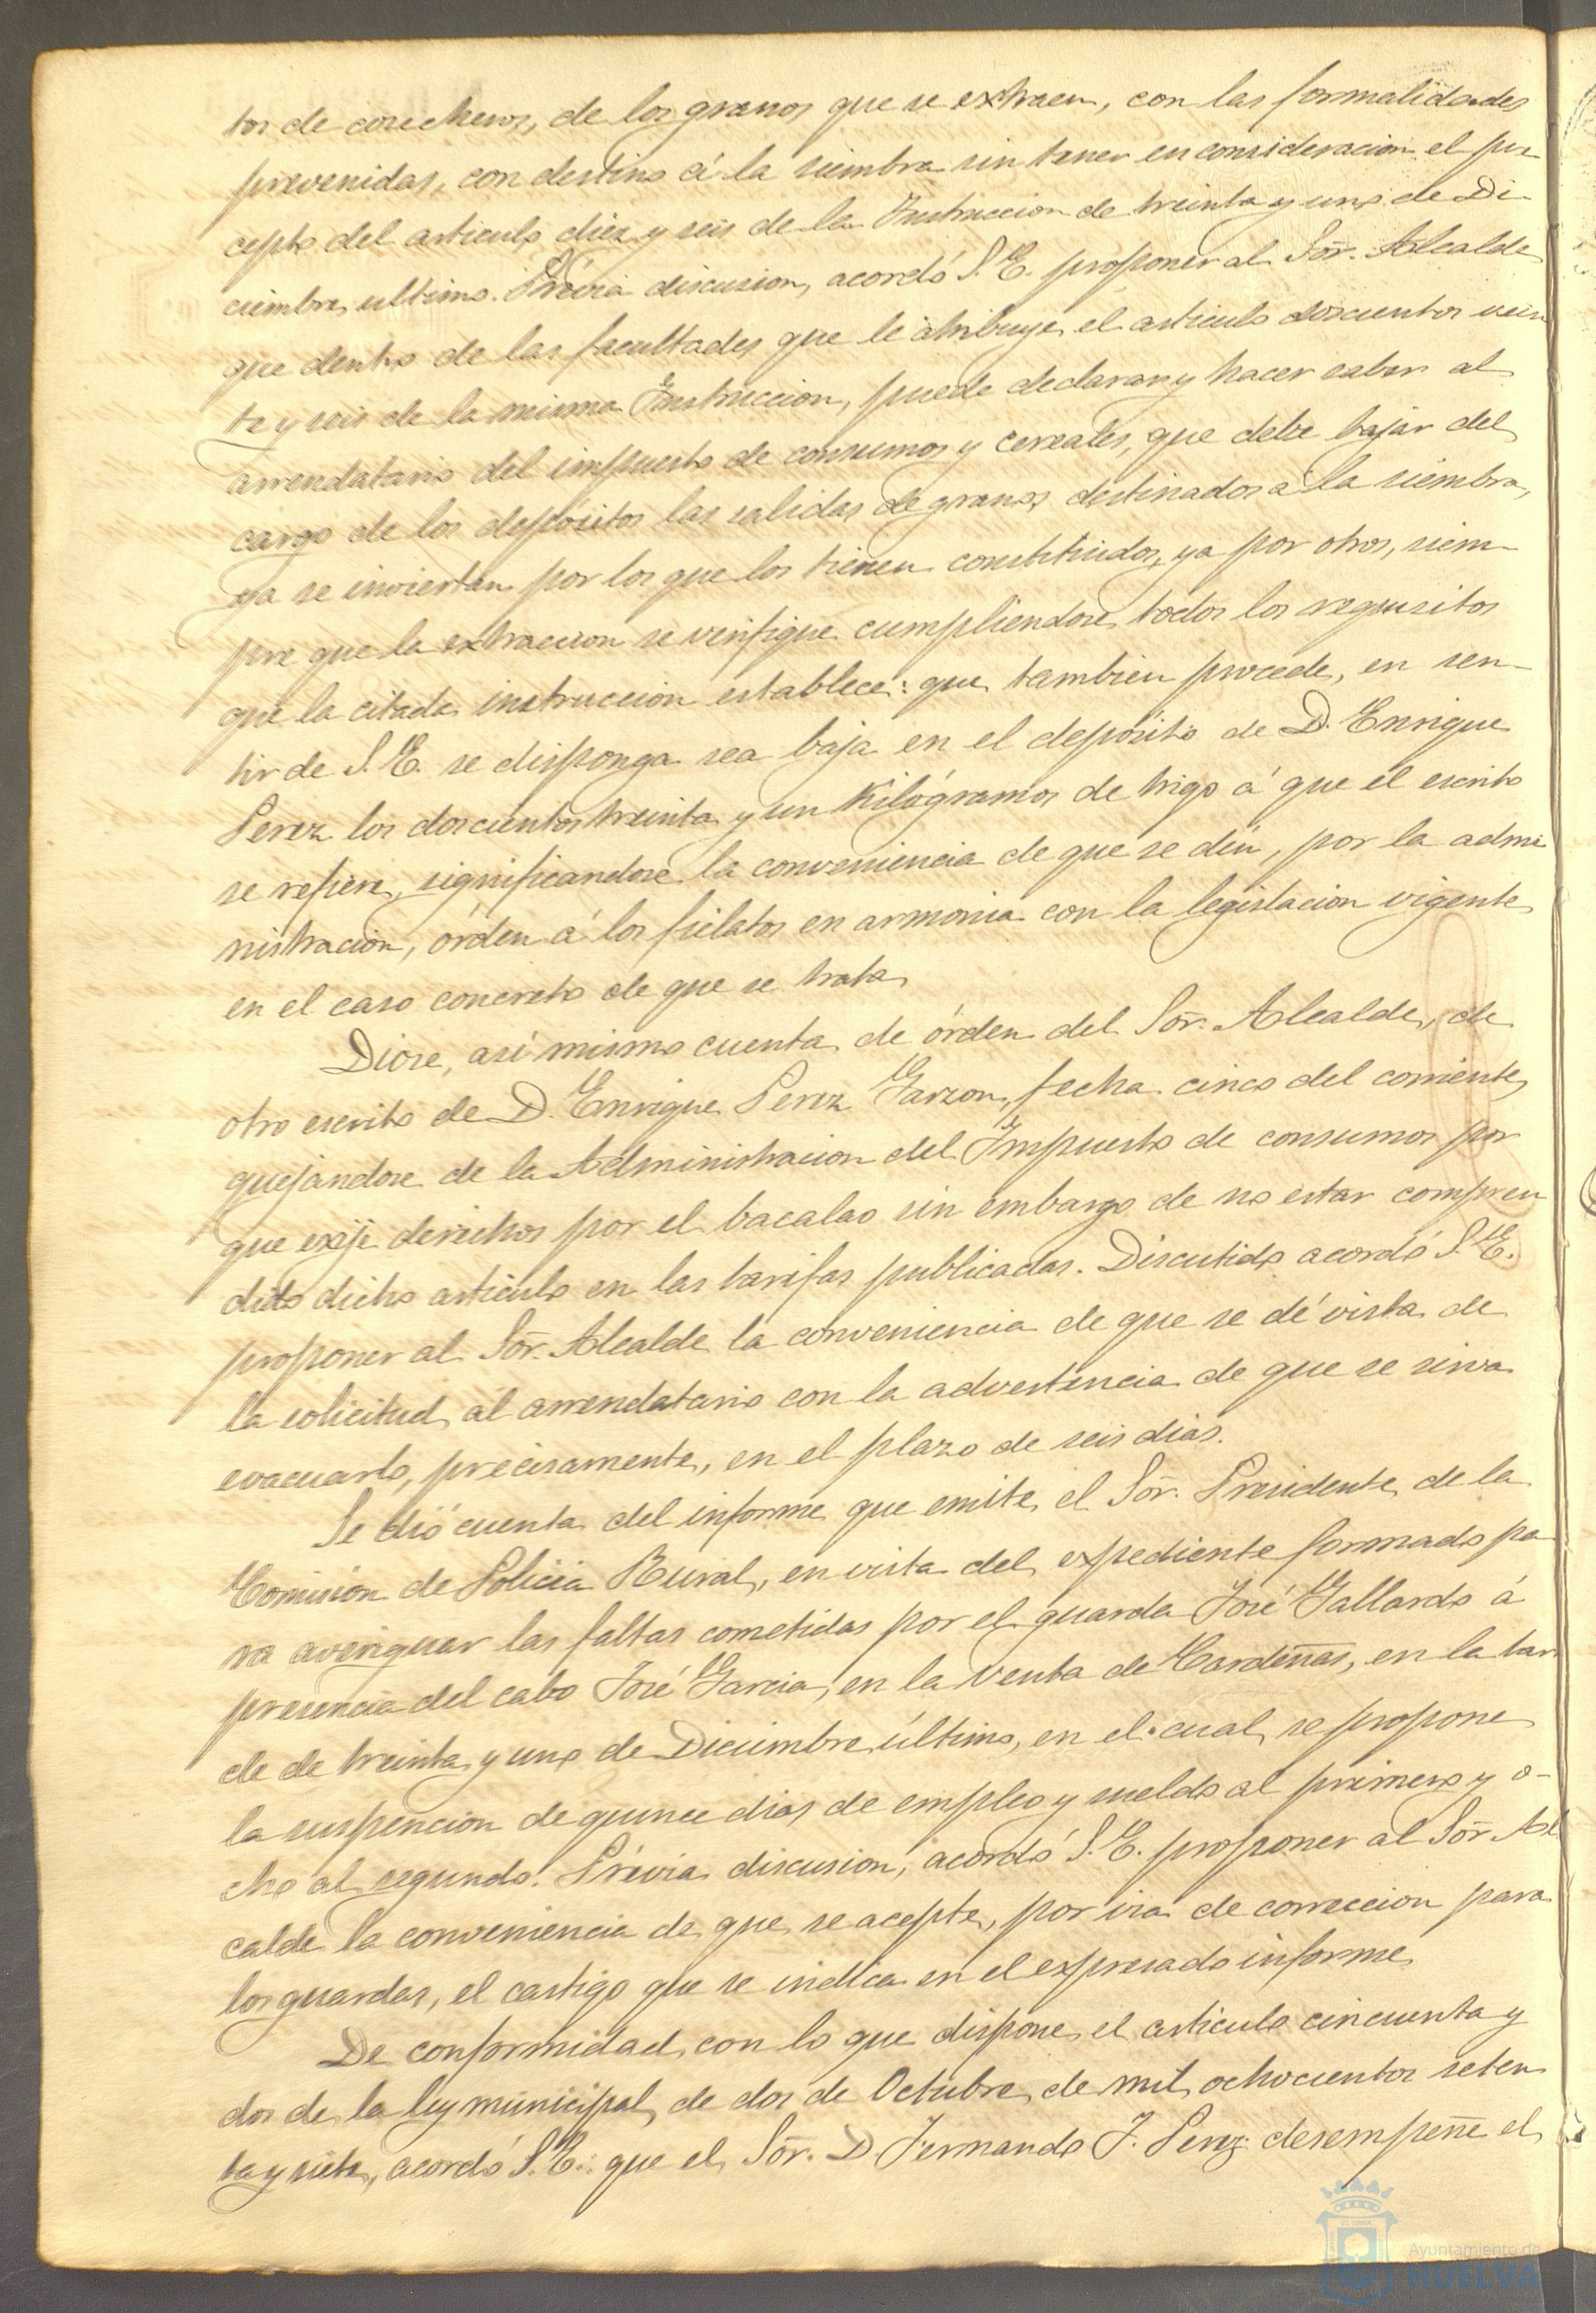 tos de cosecheros, de los granos que se extraen, con las formalidades
prevenidas, con destino á la siembra sin tener en consideracion el pre
cepto del articulo diez y seis de la Instruccion de treinta y uno de Di-
ciembre ultimo. Prévia discusion, acordó S. E. proponer al Sor. Alcalde
que dentro de las facultades que le atribuye el articulo doscientos vein
te y seis de la misma Instruccion, puede declarar y hacer saber al
arrendatario del impuesto de consumos y cereales, que debe bajar del
cargo de los depósitos las salidas de granos destinados a la siembra,
ya se inviertan por los que los tienen constituidos, ya por otros, siem-
pre que la extraccion se verifique cumpliendose todos los requisitos
que la citada instruccion establece: que tambien procede, en sen-
tir de S. E. se disponga sea baja en el depósito de D. Enrique
Perez los doscientos treinta y un Kilógramos de trigo á que el escrito
se refiere, significandose la conveniencia de que se dén, por la admi
nistración, órden á los fielatos en armonia con la legislacion vigente
en el caso concreto de que se trata
Diose, así mismo cuenta de órden del Sor. Alcalde, de
otro escrito de D. Enrique Perez Garzon, fecha cinco del corriente,
quejandose de la Administracion del Impuesto de consumos por
que exije derechos por el bacalao sin embargo de no estar compren
dido dicho articulo en las tarifas publicadas. Discutido acordó S. E.
proponer al Sor. Alcalde la conveniencia de que se dé vista de
la solicitud al arrendatario con la advertencia de que se sirva
evacuarlo, precisamente, en el plazo de seis dias.
Se dió cuenta del informe que emite el Sor. Presidente de la
Comision de Policia Rural, en vista del expediente formado pa
ra averiguar las faltas cometidas por el guarda José Gallardo á
presencia del cabo José Garcia, en la venta de Cardeñas, en la tar
de de treinta y uno de Diciembre último, en el cual se propone
la suspencion de quince dias de empleo y sueldo al primero y o-
cho al segundo. Prévia discusion, acordó S. E. proponer al Sor Al
calde la conveniencia de que se acepte, por via de correccion para
los guardas, el castigo que se indica en el expresado informe
De conformidad con lo que dispone el articulo cincuenta y
dos de la ley municipal de dos de Octubre de mil ochocientos seten
ta y siete, acordó S. E.: que el Sor. D. Fernando J. Perez desempeñe el
Ayuntamiento de
HUELVA